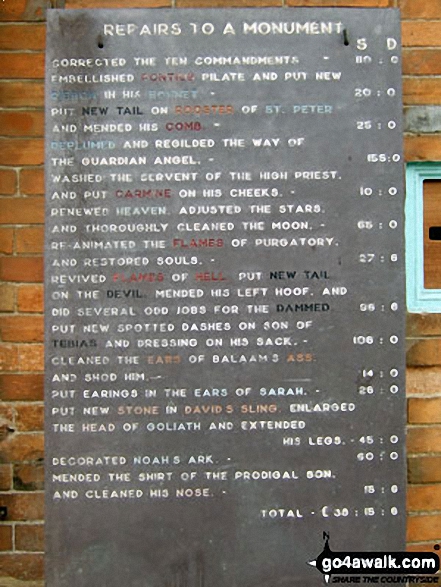 REPAIRS TO A MONUMENT
S D
CORRECTED THE TEN COMMANDMENTS -
EMBELLISHED PONTIUS PILATE AND PUT NEW
RIBBON IN HIS BONNET - 20 : 0
PUT NEW TAIL ON ROOSTER OF ST. PETER
AND MENDED HIS COMB. - 25 : 0
REPLUMED AND REGILDED THE WAY OF
THE GUARDIAN ANGEL. - 155:0
WASHED THE SERVENT OF THE HIGH PRIEST,
AND PUT CARMINE ON HIS CHEEKS. - 10 : 0
RENEWED HEAVEN. ADJUSTED THE STARS,
AND THOROUGHLY CLEANED THE MOON. - 65 : 0
RE-ANIMATED THE FLAMES OF PURGATORY,
AND RESTORED SOULS. - 27 : 6
REVIVED FLAMES OF HELL. PUT NEW TAIL
ON THE DEVIL. MENDED HIS LEFT HOOF, AND
DID SEVERAL ODD JOBS FOR THE DAMMED. 96 : 6
PUT NEW SPOTTED DASHES ON SON OF
TEBIAS AND DRESSING ON HIS SACK. - 106 : 0
CLEANED THE EARS OF BALAAM'S ASS.
AND SHOD HIM. - 14 : 0
PUT EARINGS IN THE EARS OF SARAH. - 26 : 0
PUT NEW STONE IN DAVID'S SLING. ENLARGED
THE HEAD OF GOLIATH AND EXTENDED
HIS LEGS. - 45 : 0
DECORATED NOAH'S ARK. - 60 : 0
MENDED THE SHIRT OF THE PRODIGAL SON,
AND CLEANED HIS NOSE. - 15 : 6
TOTAL - £ 38 : 15 : 6
N
go4awalk.com
SHARE THE COUNTRYSIDE